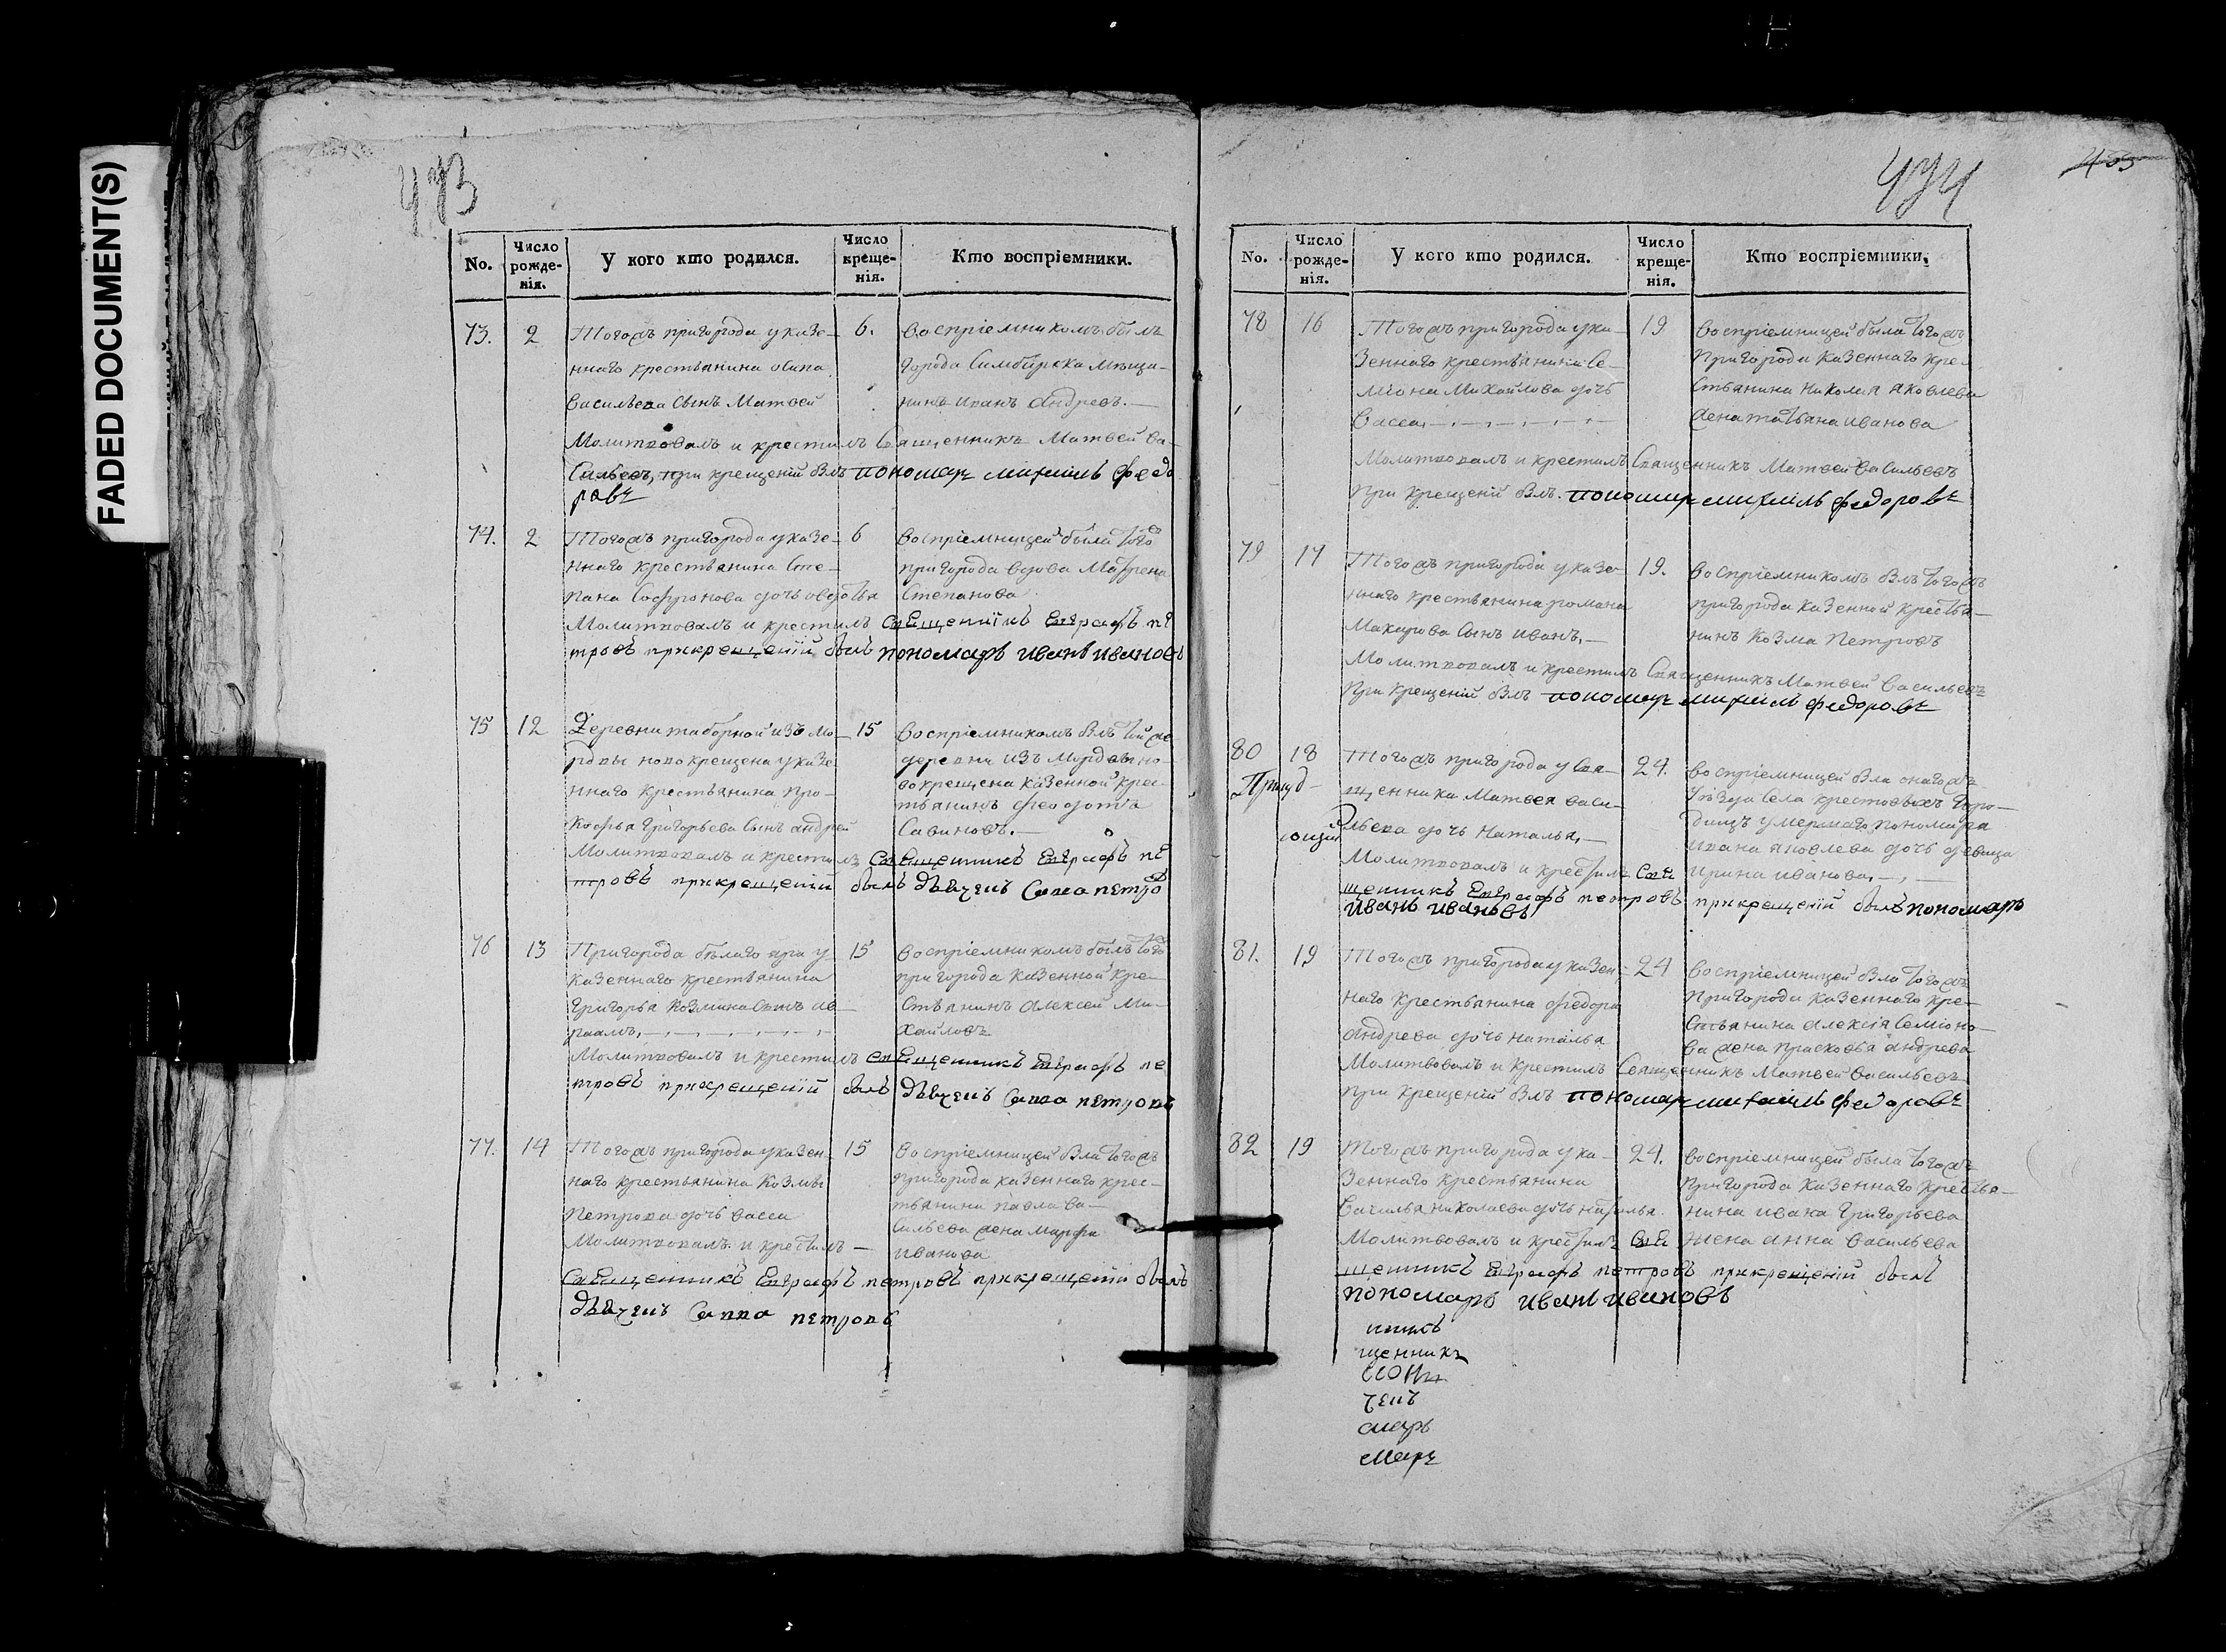 FADED DOCUMENT(S)
473
No.
Число рожденія.
У кого кто родился.
Число крещенія.
Кто воспріемники.
73. 2
Тогожъ пригорода у казе-
ннаго крестьянина осипа
Васильева сынъ Матвей
6.
воспріемникомъ былъ
города Симбирска мѣща-
нинъ иванъ андреевъ.—
Молитвовалъ и крестилъ Священникъ Матвей Ва-
сильевъ, при крещеній былъ пономарь михаилъ федо
ровъ
74. 2
Тогожъ пригорода у казе-
ннаго крестьянина Сте-
пана Софронова дочь овдотья
6
воспріемницей была тогожъ
пригорода вдова Матрена
Степанова
Молитвовалъ и крестилъ священникъ Евграфъ пе
тровъ прикрещеній былъ пономарь иванъ ивановъ
75 12
Деревни таборной изъ мо-
рдвы новокрещена у казе
ннаго крестьянина про-
кофья Григорьева сынъ андрей
15
воспріемникомъ былъ той же
деревни изъ мордвы но-
вокрещена казенной крес-
тьянинъ феодотъ
Савиновъ.—
Молитвовалъ и крестилъ священникъ Евграфъ пе
тровъ прикрещеній былъ дьячекъ Савва петро
76 13
Пригорода бѣлаго яра у
казеннаго крестьянина
Григорья Козмина сынъ ав-
раамъ,—
15
воспріемникомъ былъ тогожъ
пригорода казенной кре-
стьянинъ алексей Ми-
хайловъ
Молитвовалъ и крестилъ священникъ Евграфъ пе
тровъ прикрещеній былъ дьячекъ Савва петровъ
77. 14
Тогожъ пригорода у казен-
наго крестьянина Козмы
Петрова дочь васса
15
воспріемницей была тогожъ
пригорода казеннаго крес-
тьянина павла ва-
сильева жена марфа
иванова
Молитвовалъ и крестилъ —
Священникъ Евграфъ петровъ прикрещеній былъ
дьячекъ Савва петровъ
474
No.
Число рожденія.
У кого кто родился.
Число крещенія.
Кто воспріемники.
78 16
Тогожъ пригорода у ка-
зеннаго крестьянина Се-
міона Михайлова дочь
васса,—
19
воспріемницей была тогожъ
пригорода казеннаго кре-
стьянина николая яковлева
жена татьяна иванова
Молитвовалъ и крестилъ Священникъ Матвей Васильевъ
при крещеній былъ. пономарь михаилъ федоровъ
79 17
Тогожъ пригорода у казе-
ннаго крестьянина романа
Макарова сынъ иванъ,—
19.
воспріемникомъ былъ тогожъ
пригорода казенной крестья-
нинъ козма Петровъ
Молитвовалъ и крестилъ Священникъ Матвей Васильевъ
при крещеній былъ пономарь михаилъ федоровъ
80 18
Тогожъ пригорода у свя-
щенника Матвея васи-
льева дочь Наталья,—
24.
воспріемницей была онагожъ
уѣзда села крестовыхъ Горо-
дищъ умершаго пономаря
ивана яковлева дочь девица
ирина иванова,—
Молитвовалъ и крестилъ свя
щенникъ Евграфъ петровъ прикрещеній былъ пономарь
иванъ ивановъ
81. 19
Тогожъ пригорода у казен-
наго крестьянина федора
андреева дочь наталья
24
воспріемницей была тогожъ
пригорода казеннаго кре-
стьянина алексія Семіоно-
ва жена прасковья андреева
Молитвовалъ и крестилъ Священникъ Матвей Васильевъ
при крещеній былъ пономарь михаилъ федоровъ
82 19
Тогожъ пригорода у ка-
зеннаго крестьянина
Василья николаева дочь наталья.
24.
воспріемницей была тогожъ
пригорода казеннаго крестья-
нина ивана Григорьева
жена анна Васильева
Молитвовалъ и крестилъ свя
щенникъ Евграфъ петровъ прикрещеній былъ
пономарь иванъ ивановъ
щенникъ
чекъ
марь
марь